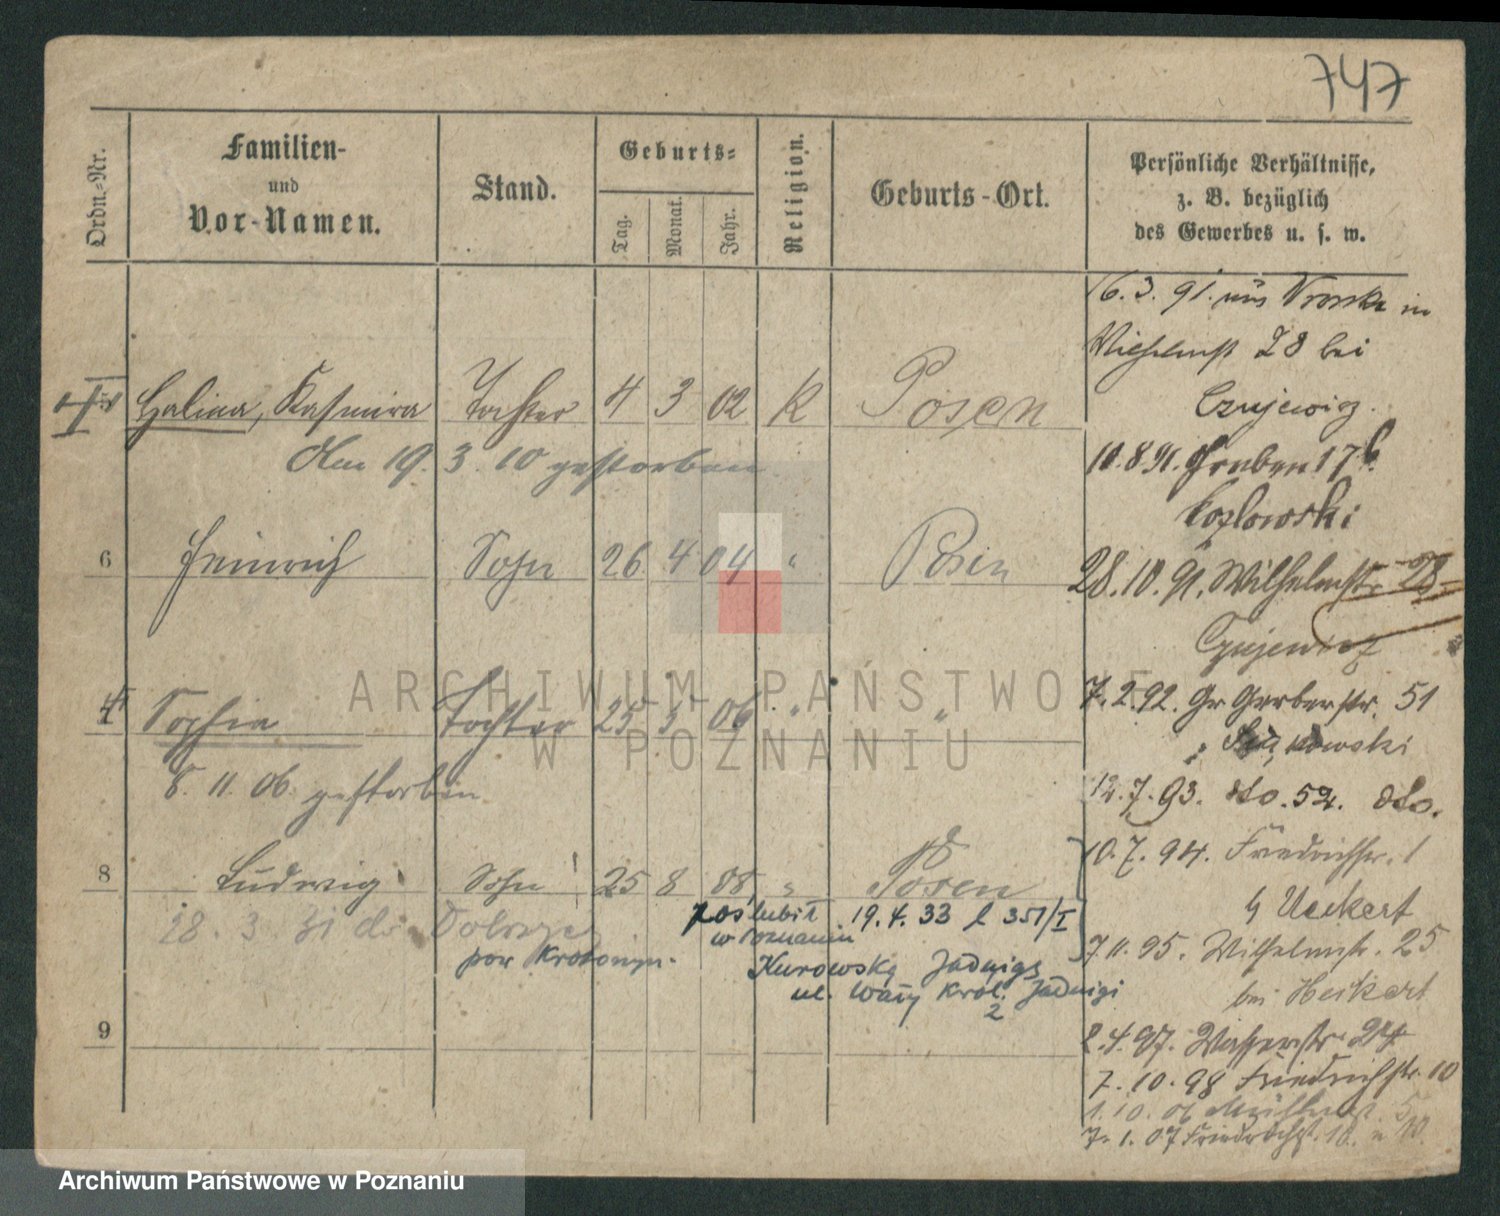 747
Ordn.-Nr.
Familien-
und
Vor-Namen.
Stand.
Geburts-
Tag.
Monat.
Jahr.
Religion.
Geburts-Ort.
Persönliche Verhältnisse,
z. B. bezüglich
des Gewerbes u. s. w.
Halina, Kasimira Tochter 4 3 02 K Posen
Am 19. 3. 10 gestorben
6 Heinrich Sohn 26 4 04 " Posen
Sophia Tochter 25 5 06 " "
8. 11. 06. gestorben
8 Ludwig Sohn 25 8 08 " Posen
28. 3. 31 do
poślubił 19. 4. 33 l 351/I
w Poznaniu
pow Krotoszyn.
Kurowską Jadwigę
ul. Wały Król. Jadwigi
2
9
16. 3. 91. aus in
Wilhelmst 28 bei
Czujewicz.
10. 8. 91. Graben 17 b.
Kozlowski
28. 10. 91. Wilhelmstr. 28
Czujewicz
7. 2. 92. Gr Gerberstr. 51
12. 7. 93. dto. 52. dto.
10. 7. 94. Friedrichstr. 1
b Ueckert
7. 11. 95. Wilhelmstr. 25
bei Heikert
2. 4. 97. Wasserstr. 24
7. 10. 98 Friedrichstr. 10
1. 10. 06 Mühlenst. 5
7. 1. 07 Friedrichst. 10.
ARCHIWUM PAŃSTWOWE
W POZNANIU
Archiwum Państwowe w Poznaniu